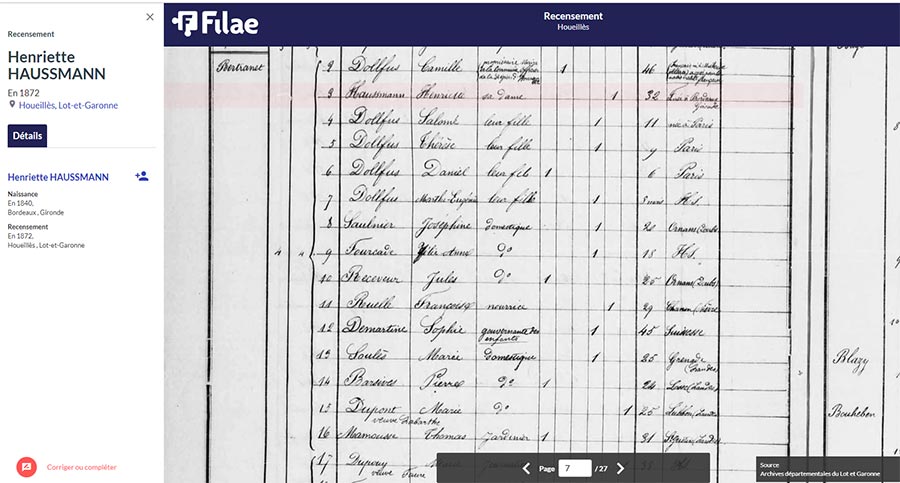 Recensement
Henriette
HAUSSMANN
En 1872
Houeillès, Lot-et-Garonne
Détails
Henriette HAUSSMANN
Naissance
En 1840,
Bordeaux , Gironde
Recensement
En 1872,
Houeillès , Lot-et-Garonne
Corriger ou compléter
Filae
Recensement
Houeillès
Bertranet
2 Dollfus Camille 1 46
3 Haussmann Henriette sa dame 1 32 Née à Bordeaux Gironde
4 Dollfus Salomé leur fille 1 11 née à Paris
5 Dollfus Thérèse leur fille 1 9 Paris
6 Dollfus Daniel leur fils 1 6 Paris
7 Dollfus Marthe leur fille 1 5 mois Hs.
8 Saulnier Joséphine domestique 1 Ornans
9 Fourcade Anne do 1 18 Hs.
10 Receveur Jules do 1 25 Ornans (Doubs)
11 Ruelle Françoise nourrice 1 29
12 Demartine Sophie gouvernante des enfants 1 45 Suissesse
13 Soulès Marie domestique 1 25 Grenade (Landes)
14 Pierre do 1 24 Losse (Landes)
15 Dupont Marie do 1 25
veuve Labarthe
16 Mamousse Thomas Jardinier 1 31
17 Dupouy
veuve
Blazy
Bouhebon
Page 7 / 27
Source
Archives départementales du Lot et Garonne